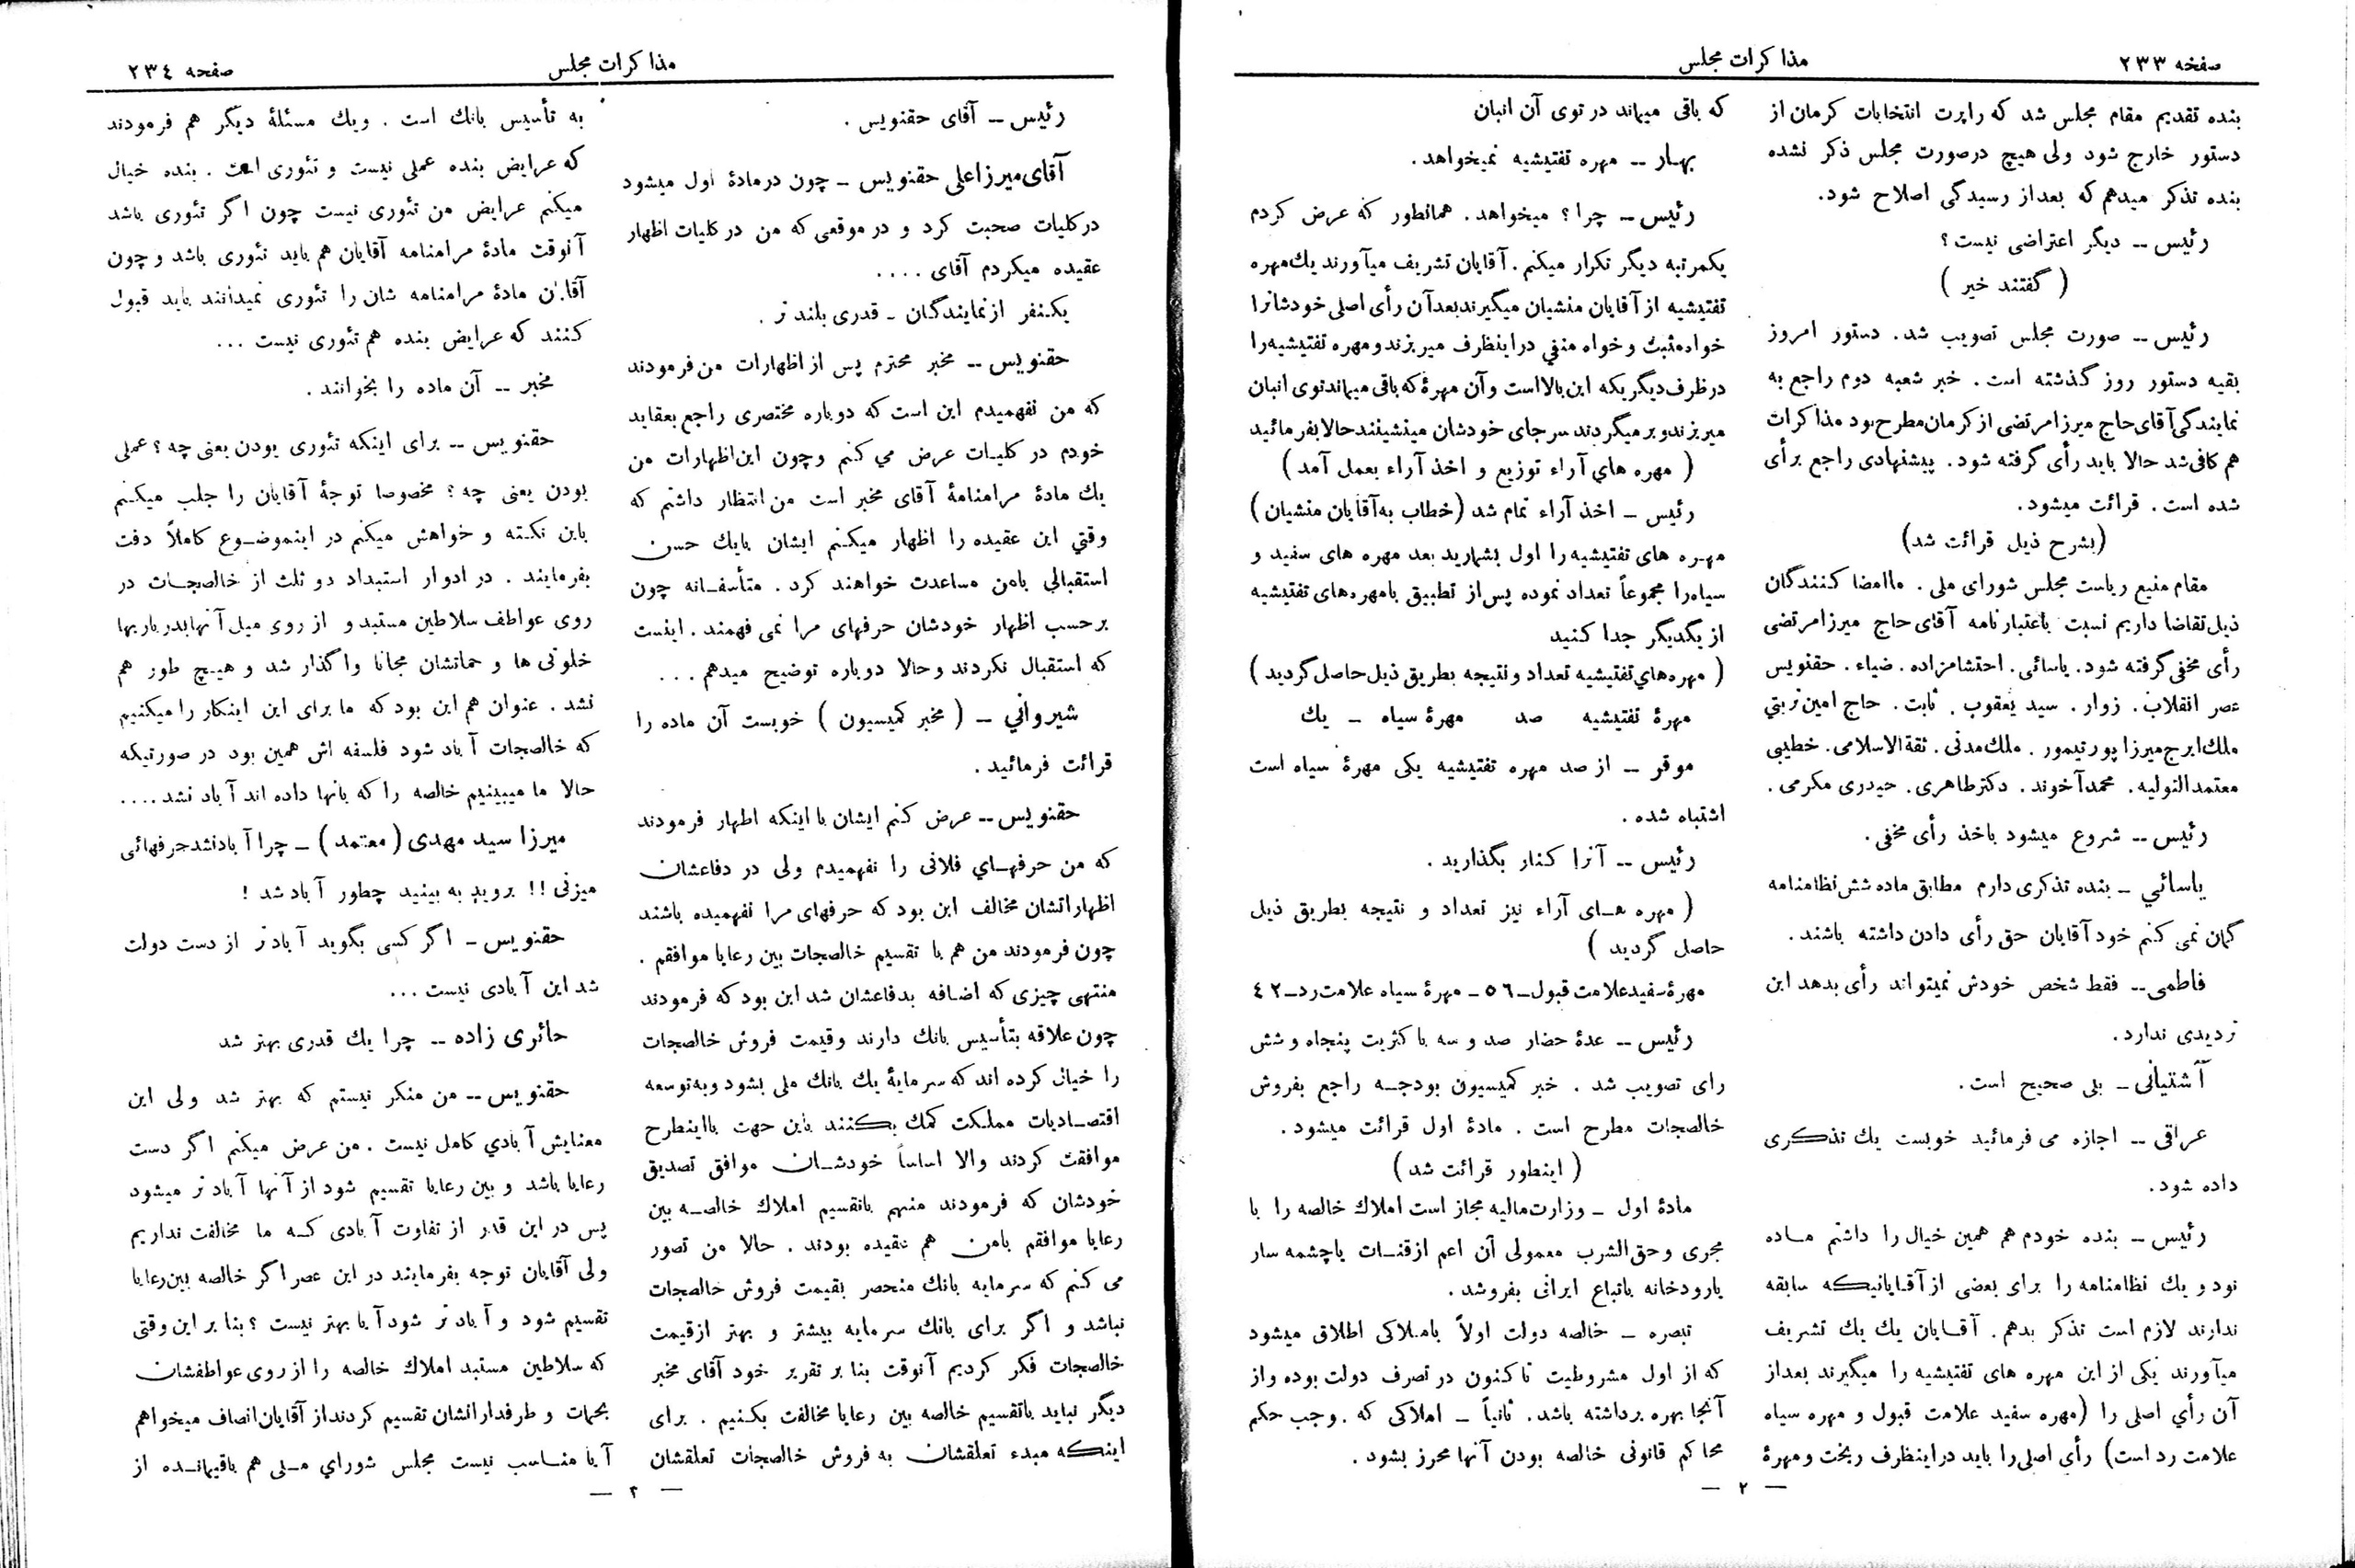 صفحه ۲۳۳
مذاکرات مجلس
بنده تقدیم مقام مجلس شد که راپرت انتخابات کرمان از
دستور خارج شود ولی هیچ درصورت مجلس ذکر نشده
بنده تذکر میدهم که بعد از رسیدگی اصلاح شود.
رئیس -- دیگر اعتراضی نیست؟
( گفتند خیر )
رئیس -- صورت مجلس تصویب شد. دستور امروز
بقیه دستور روز گذشته است. خبر شعبه دوم راجع به
نمایندگی آقای حاج میرزا مرتضی از کرمان مطرح بود مذاکرات
هم کافی شد حالا باید رأی گرفته شود. پیشنهادی راجع برأی
شده است. قرائت میشود.
(بشرح ذیل قرائت شد)
مقام منیع ریاست مجلس شورای ملی. ما امضا کنندگان
ذیل تقاضا داریم نسبت باعتبارنامه آقای حاج میرزا مرتضی
رأی مخفی گرفته شود. یاسائی. احتشامزاده. ضیاء. حقنویس
عصر انقلاب. زوار. سید یعقوب. ثابت. حاج امین تربتي
ملك ایرج میرزا پور تیمور. ملك مدنی. ثقة الاسلامی. خطیبی
معتمدالتولیه. محمد آخوند. دکتر طاهری. حیدری مکرمی.
رئیس -- شروع میشود باخذ رأی مخفی.
یاسائي - بنده تذکری دارم مطابق ماده شش نظامنامه
گمان نمی کنم خود آقایان حق رأی دادن داشته باشند.
فاطمی -- فقط شخص خودش نمیتواند رأی بدهد این
تردیدی ندارد.
آشتیانی - بلی صحیح است.
عراقی -- اجازه می فرمائید خوبست یك تذکری
داده شود.
رئیس - بنده خودم هم همین خیال را داشتم ماده
نود و یك نظامنامه را برای بعضی از آقایانیکه سابقه
ندارند لازم است تذکر بدهم. آقایان یك یك تشریف
میآورند یکی از این مهره های تفتیشیه را میگیرند بعد از
آن رأي اصلی را (مهره سفید علامت قبول و مهره سیاه
علامت رد است) رأی اصلی را باید در اینظرف ریخت و مهرهٔ
که باقی میماند در توی آن انبان
بهار -- مهره تفتیشیه نمیخواهد.
رئیس - چرا؟ میخواهد. همانطور که عرض کردم
یکمرتبه دیگر تکرار میکنم. آقایان تشریف میآورند یك مهره
تفتیشیه از آقایان منشیان میگیرند بعد آن رأی اصلی خودشانرا
خواه مثبت و خواه منفي در اینظرف میریزند و مهره تفتیشیه را
در ظرف دیگریکه این بالا است و آن مهرهٔ که باقی میماند توی انبان
میریزند و برمیگردند سر جای خودشان مینشینند حالا بفرمائید
( مهره هاي آراء توزیع و اخذ آراء بعمل آمد )
رئیس - اخذ آراء تمام شد (خطاب به آقایان منشیان)
مهره های تفتیشیه را اول بشمارید بعد مهره های سفید و
سیاه را مجموعاً تعداد نموده پس از تطبیق با مهره های تفتیشیه
از یگدیگر جدا کنید
( مهره هاي تفتیشیه تعداد و نتیجه بطریق ذیل حاصل گردید )
مهرهٔ تفتیشیه صد مهرهٔ سیاه - یك
موقر -- از صد مهره تفتیشیه یکی مهرهٔ سیاه است
اشتباه شده.
رئیس -- آنرا کنار بگذارید.
( مهره های آراء نیز تعداد و نتیجه بطریق ذیل
حاصل گردید )
مهرهٔ سفید علامت قبول - ٥٦ - مهرهٔ سیاه علامت رد - ٤٢
رئیس -- عدهٔ حضار صد و سه باکثریت پنجاه و شش
رای تصویب شد. خبر کمیسیون بودجه راجع بفروش
خالصجات مطرح است. مادهٔ اول قرائت میشود.
( اینطور قرائت شد )
مادهٔ اول - وزارت مالیه مجاز است املاك خالصه را با
مجری و حق الشرب معمولی آن اعم از قنات یا چشمه سار
یا رودخانه باتباع ایرانی بفروشد.
تبصره - خالصه دولت اولاً باملاکی اطلاق میشود
که از اول مشروطیت تاکنون در تصرف دولت بوده و از
آنجا بهره برداشته باشد. ثانیاً - املاکی که بموجب حکم
محاکم قانونی خالصه بودن آنها محرز بشود.
— ۲ —
مذاکرات مجلس
صفحه ۲۳٤
رئیس -- آقای حقنویس.
آقای میرزا علی حقنویس - چون در مادهٔ اول میشود
در کلیات صحبت کرد و در موقعی که من در کلیات اظهار
عقیده میکردم آقای ....
یکنفر از نمایندگان - قدری بلند تر.
حقنویس -- مخبر محترم پس از اظهارات من فرمودند
که من نفهمیدم این است که دوباره مختصری راجع بعقاید
خودم در کلیات عرض مي کنم و چون این اظهارات من
یك مادهٔ مرامنامهٔ آقای مخبر است من انتظار داشتم که
وقتي این عقیده را اظهار میکنم ایشان بایك حسن
استقبالی بامن مساعدت خواهند کرد. متأسفانه چون
برحسب اظهار خودشان حرفهای مرا نمی فهمند. اینست
که استقبال نکردند و حالا دوباره توضیح میدهم ...
شیرواني - ( مخبر کمیسیون ) خوبست آن ماده را
قرائت فرمائید.
حقنویس -- عرض کنم ایشان با اینکه اظهار فرمودند
که من حرفهاي فلانی را نفهمیدم ولی در دفاعشان
اظهاراتشان مخالف این بود که حرفهای مرا نفهمیده باشند
چون فرمودند من هم با تقسیم خالصجات بین رعایا موافقم.
منتهی چیزی که اضافه بدفاعشان شد این بود که فرمودند
چون علاقه بتأسیس بانك دارند و قیمت فروش خالصجات
را خیال کرده اند که سرمایهٔ یك بانك ملی بشود و به توسعه
اقتصادیات مملکت کمك بکنند باین جهت با اینطرح
موافقت کردند والا اساساً خودشان موافق تصدیق
خودشان که فرمودند منهم باتقسیم املاك خالصه بین
رعایا موافقم بامن هم عقیده بودند. حالا من تصور
می کنم که سرمایه بانك منحصر بقیمت فروش خالصجات
نباشد و اگر برای بانك سرمایه بیشتر و بهتر از قیمت
خالصجات فکر کردیم آنوقت بنا بر تقریر خود آقای مخبر
دیگر نباید باتقسیم خالصه بین رعایا مخالفت بکنیم. برای
اینکه مبدء تعلقشان به فروش خالصجات تعلقشان
به تأسیس بانك است. ویك مسئلهٔ دیگر هم فرمودند
که عرایض بنده عملی نیست و تئوری است. بنده خیال
میکنم عرایض من تئوری نیست چون اگر تئوری باشد
آنوقت مادهٔ مرامنامه آقایان هم باید تئوری باشد و چون
آقایان مادهٔ مرامنامه شان را تئوری نمیدانند باید قبول
کنند که عرایض بنده هم تئوری نیست ...
مخبر -- آن ماده را بخوانند.
حقنویس -- برای اینکه تئوری بودن یعنی چه؟ عملی
بودن یعنی چه؟ مخصوصا توجهٔ آقایان را جلب میکنم
باین نکته و خواهش میکنم در اینموضوع کاملاً دقت
بفرمایند. در ادوار استبداد دو ثلث از خالصجات در
روی عواطف سلاطین مستبد و از روی میل آنها بدرباریها
خلوتی ها و خماتشان مجانا واگذار شد و هیچ طور هم
نشد. عنوان هم این بود که ما برای این اینکار را میکنیم
که خالصجات آباد شود فلسفه اش همین بود در صورتیکه
حالا ما میبینیم خالصه را که بانها داده اند آباد نشد ....
میرزا سید مهدی (معتمد) - چرا آباد نشد حرفهائی
میزنی!! بروید به بینید چطور آباد شد!
حقنویس - اگر کسی بگوید آبادتر از دست دولت
شد این آبادی نیست ...
حائری زاده -- چرا یك قدری بهتر شد
حقنویس -- من منکر نیستم که بهتر شد ولی این
معنایش آبادي کامل نیست. من عرض میکنم اگر دست
رعایا باشد و بین رعایا تقسیم شود از آنها آبادتر میشود
پس در این قدر از تفاوت آبادی که ما مخالفت نداریم
ولی آقایان توجه بفرمایند در این عصر اگر خالصه بین رعایا
تقسیم شود و آبادتر شود آیا بهتر نیست؟ بنا بر این وقتی
که سلاطین مستبد املاك خالصه را از روی عواطفشان
بخمات و طرفدارانشان تقسیم کردند از آقایان انصاف میخواهم
آیا مناسب نیست مجلس شورای ملی هم باقیمانده از
— ۳ —